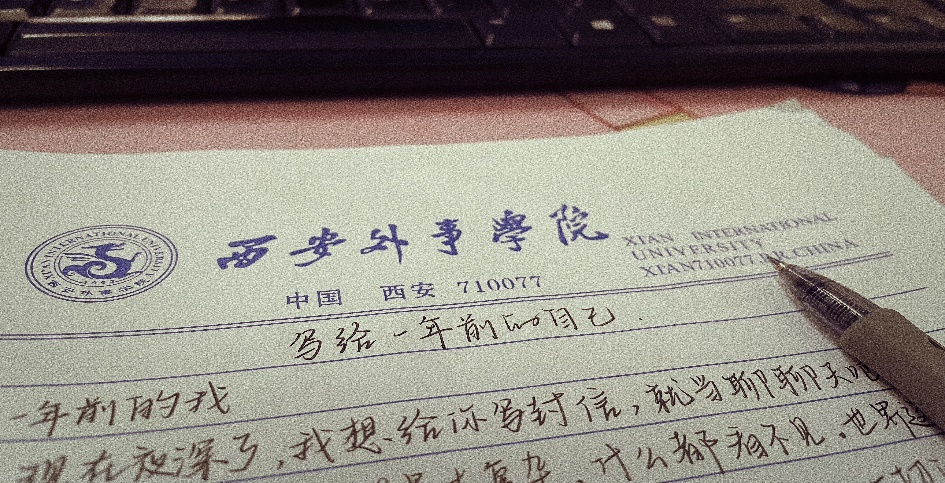 XIAN INTERNATIONAL UNIVERSITY
西安外事學院
中国 西安 710077
XIAN INTERNATIONAL
UNIVERSITY
XIAN710077 P.R.CHINA
写给一年前的自己.
一年前的我
现在夜深了,我想给你写封信,就当聊聊天吧
复杂,什么都看不见,也界
切